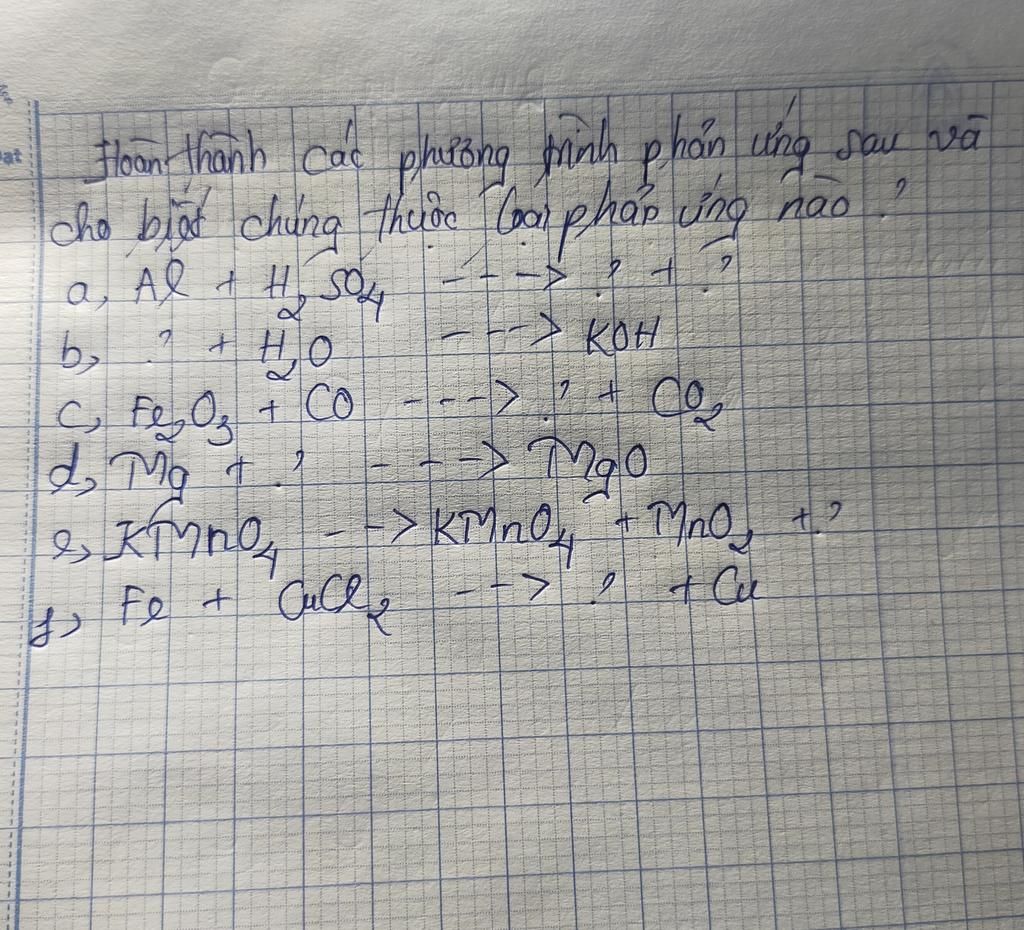 Hoàn thành các phương trình phản ứng sau và
cho biết chúng thuộc loại phản ứng nào ?
a, Al + H₂SO₄ ---> ? + ?
b, ? + H₂O ---> KOH
c, Fe₂O₃ + CO ---> ? + CO₂
d, Mg + ? ---> MgO
e, KMnO₄ --> KMnO₄ + MnO₂ + ?
f, Fe + CuCl₂ --> ? + Cu